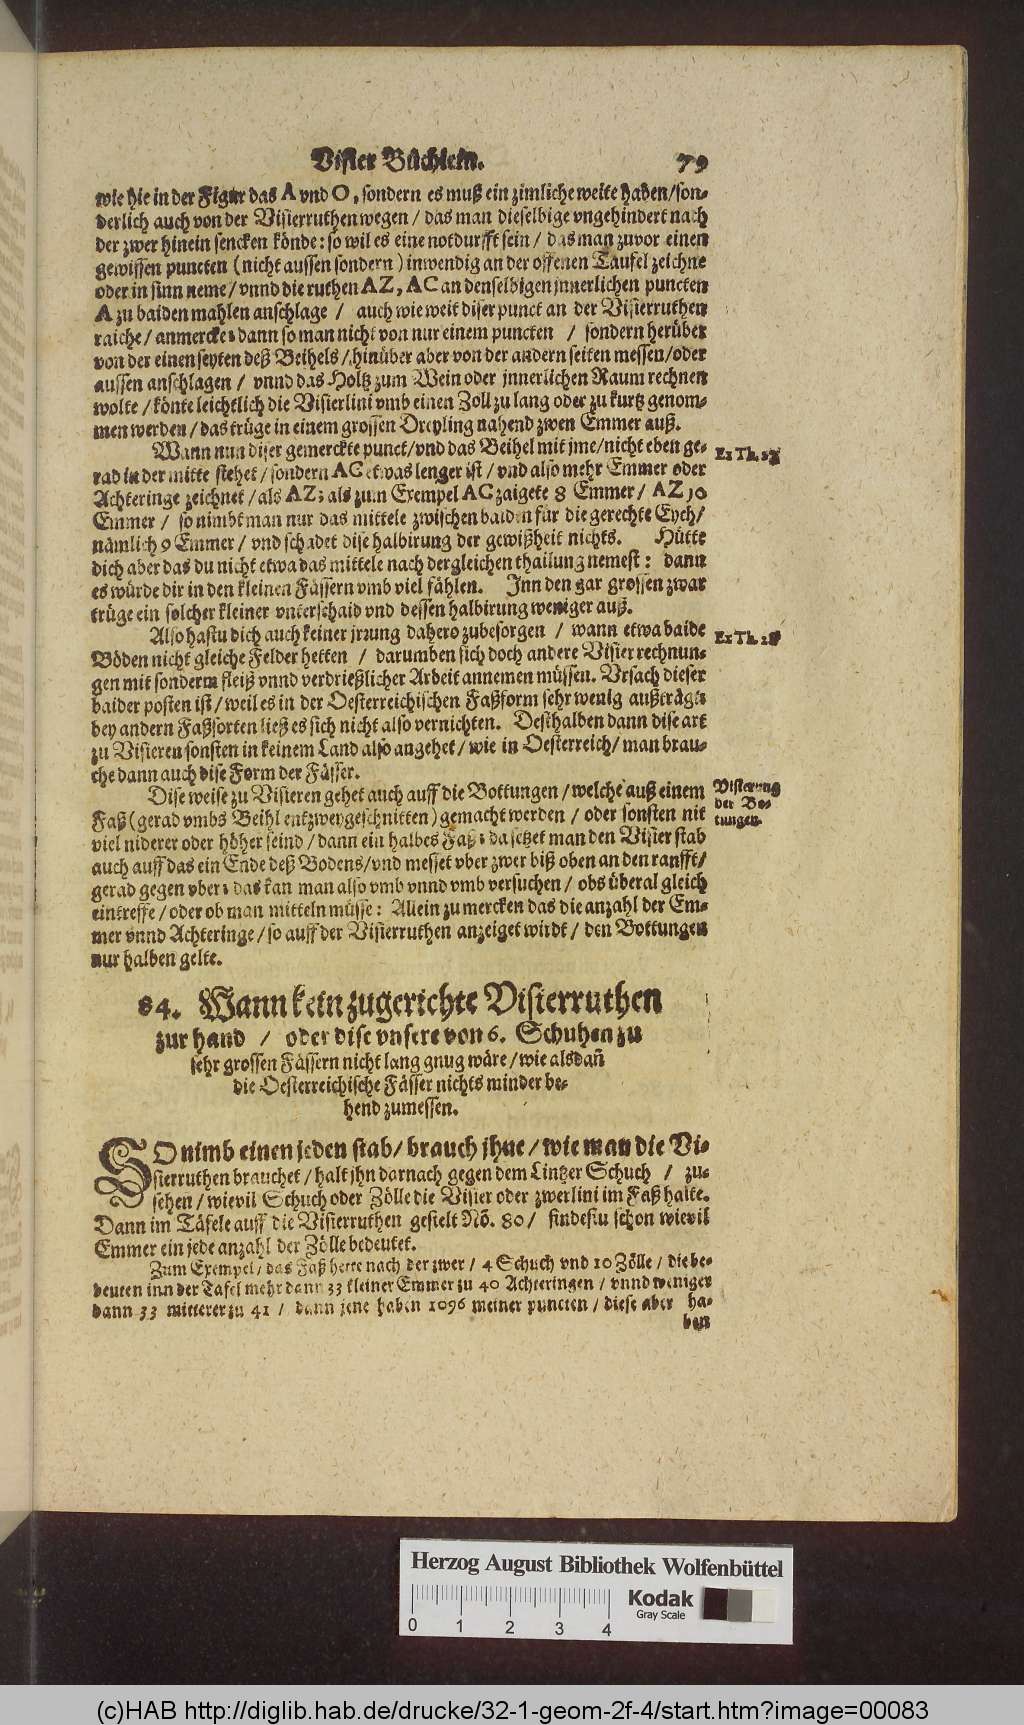 Visier Büchlein. 79
wie hie in der Figur das A vnd O, sondern es muß ein zimliche weite haben/son-
derlich auch von der Visierruthen wegen / das man dieselbige vngehindert nach
der zwer hinein sencken könde: so wil es eine notdurfft sein / das man zuvor einen
gewissen puncten (nicht aussen sondern) inwendig an der offenen Taufel zeichne
oder in sinn neme/ vnnd die ruthen AZ, AC an denselbigen jnnerlichen puncten
A zu baiden mahlen anschlage / auch wie weit diser punct an der Visierruthen
raiche/ anmercke: dann so man nicht von nur einem puncten / sondern herüber
von der einen seyten deß Beihels/ hinüber aber von der andern seiten messen/oder
aussen anschlagen / vnnd das Holtz zum Wein oder jnnerlichen Raum rechnen
wolte / könte leichtlich die Visierlini vmb einen Zoll zu lang oder zu kurtz genom-
men werden / das trüge in einem grossen Dreyling nahend zwen Emmer auß.
Wann nun diser gemerckte punct/vnd das Beihel mit jme/nicht eben ge- Ex Th. 27
rad in der mitte stehet / sondern AC etwas lenger ist / vnd also mehr Emmer oder
Achteringe zeichnet / als AZ; als zum Exempel AC zaigete 8 Emmer / AZ 10
Emmer / so nimbt man nur das mittele zwischen baiden für die gerechte Eych/
nämlich 9 Emmer / vnd schadet dise halbirung der gewißheit nichts. Hütte
dich aber das du nicht etwa das mittele nach dergleichen thailung nemest: dann
es würde dir in den kleinen Fässern vmb viel fählen. Inn den gar grossen zwar
trüge ein solcher kleiner vnterschaid vnd dessen halbirung weniger auß.
Also hastu dich auch keiner jrrung dahero zubesorgen / wann etwa baide Ex Th. 28
Böden nicht gleiche Felder hetten / darumben sich doch andere Visier rechnun-
gen mit sonderm fleiß vnnd verdrießlicher Arbeit annemen müssen. Vrsach dieser
baider posten ist / weil es in der Oesterreichischen Faßform sehr wenig außträgt:
bey andern Faßsorten ließ es sich nicht also vernichten. Desthalben dann dise art
zu Visieren sonsten in keinem Land also angehet / wie in Oesterreich/ man brau-
che dann auch dise Form der Fässer.
Dise weise zu Visieren gehet auch auff die Bottungen / welche auß einem Visierung
Faß (gerad vmbs Beihl entzwey geschnitten) gemacht werden / oder sonsten nit der Bo-
viel niderer oder höher seind / dann ein halbes Faß: da setzet man den Visier stab tungen.
auch auff das ein Ende deß Bodens/vnd messet vber zwer biß oben an den ranfft/
gerad gegen vber: das kan man also vmb vnnd vmb versuchen / obs überal gleich
eintreffe / oder ob man mitteln müsse: Allein zu mercken das die anzahl der Em-
mer vnnd Achteringe / so auff der Visierruthen anzeiget wirdt / den Bottungen
nur halben gelte.
84. Wann kein zugerichte Visierruthen
zur hand / oder dise vnsere von 6. Schuhen zu
sehr grossen Fässern nicht lang gnug wäre / wie alsdañ
die Oesterreichische Fässer nichts minder be-
hend zumessen.
SO nimb einen jeden stab/ brauch jhne / wie man die Vi-
sierruthen brauchet / halt jhn darnach gegen dem Lintzer Schuch / zu-
sehen / wievil Schuch oder Zölle die Visier oder zwerlini im Faß halte.
Dann im Täfele auff die Visierruthen gestelt Nō. 80 / findestu schon wievil
Emmer ein jede anzahl der Zölle bedeutet.
Zum Exempel/ das Faß hette nach der zwer / 4 Schuch vnd 10 Zölle / die be-
deuten inn der Tafel mehr dann 33 kleiner Emmer zu 40 Achteringen / vnnd weniger
dann 33 mitterer zu 41 / dann jene haben 1096 meiner puncten / diese aber ha-
ben
Herzog August Bibliothek Wolfenbüttel
Kodak
Gray Scale
0 1 2 3 4
(c)HAB http://diglib.hab.de/drucke/32-1-geom-2f-4/start.htm?image=00083